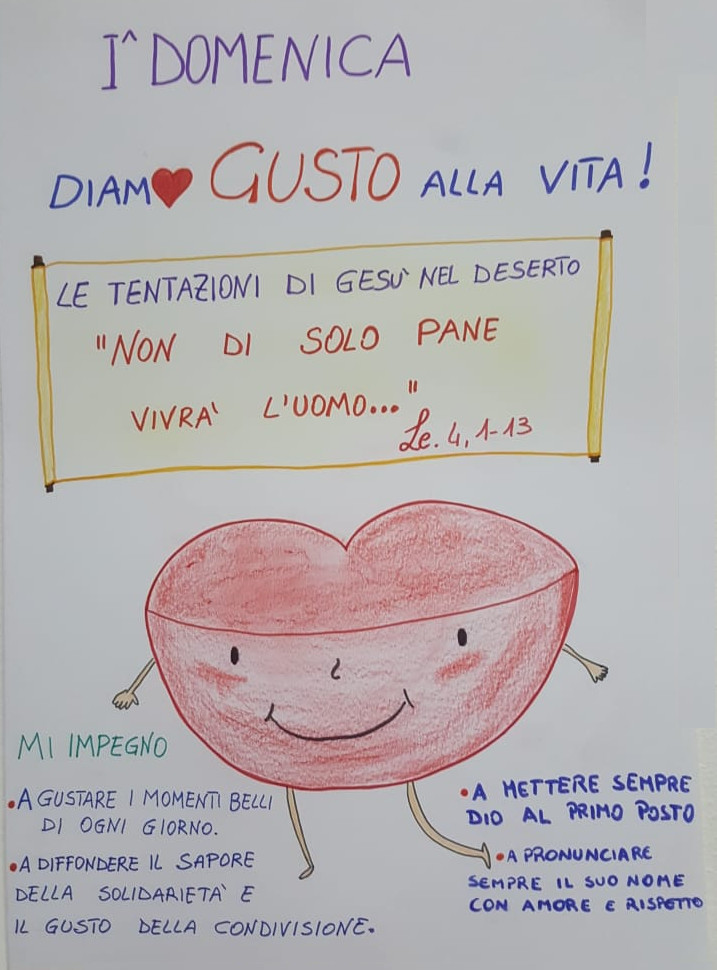 I^ DOMENICA
DIAMO GUSTO ALLA VITA!
LE TENTAZIONI DI GESU' NEL DESERTO
"NON DI SOLO PANE
VIVRA' L'UOMO..."
Lc. 4, 1-13
MI IMPEGNO
•A GUSTARE I MOMENTI BELLI
DI OGNI GIORNO.
•A DIFFONDERE IL SAPORE
DELLA SOLIDARIETA' E
IL GUSTO DELLA CONDIVISIONE.
•A METTERE SEMPRE
DIO AL PRIMO POSTO
•A PRONUNCIARE
SEMPRE IL SUO NOME
CON AMORE E RISPETTO